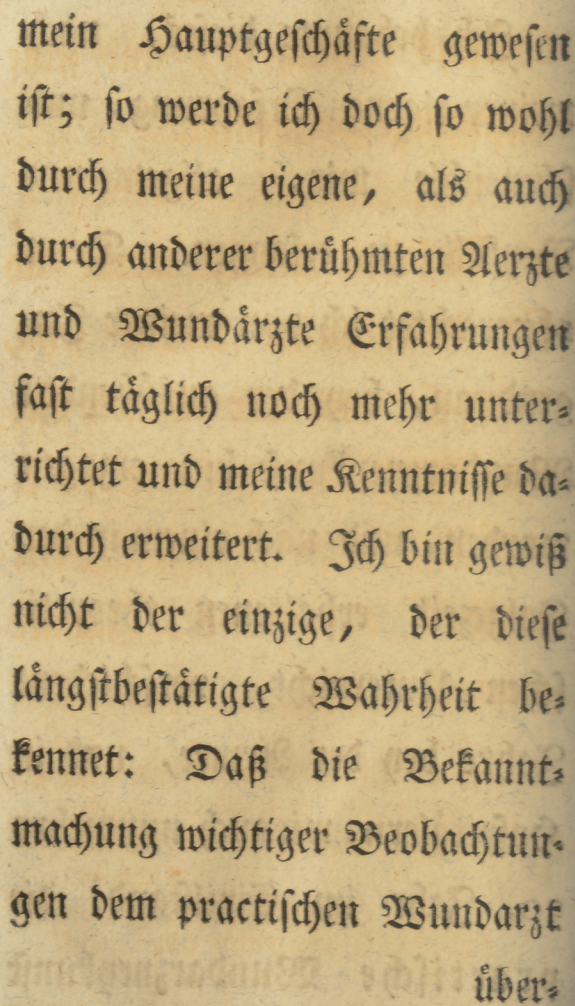 mein Hauptgeſchäfte geweſen
iſt; ſo werde ich doch ſo wohl
durch meine eigene, als auch
durch anderer berühmten Aerzte
und Wundärzte Erfahrungen
faſt täglich noch mehr unter⸗
richtet und meine Kenntniſſe da⸗
durch erweitert. Ich bin gewiß
nicht der einzige, der dieſe
längſtbeſtätigte Wahrheit be⸗
kennet: Daß die Bekannt⸗
machung wichtiger Beobachtun⸗
gen dem practiſchen Wundarzt
über⸗